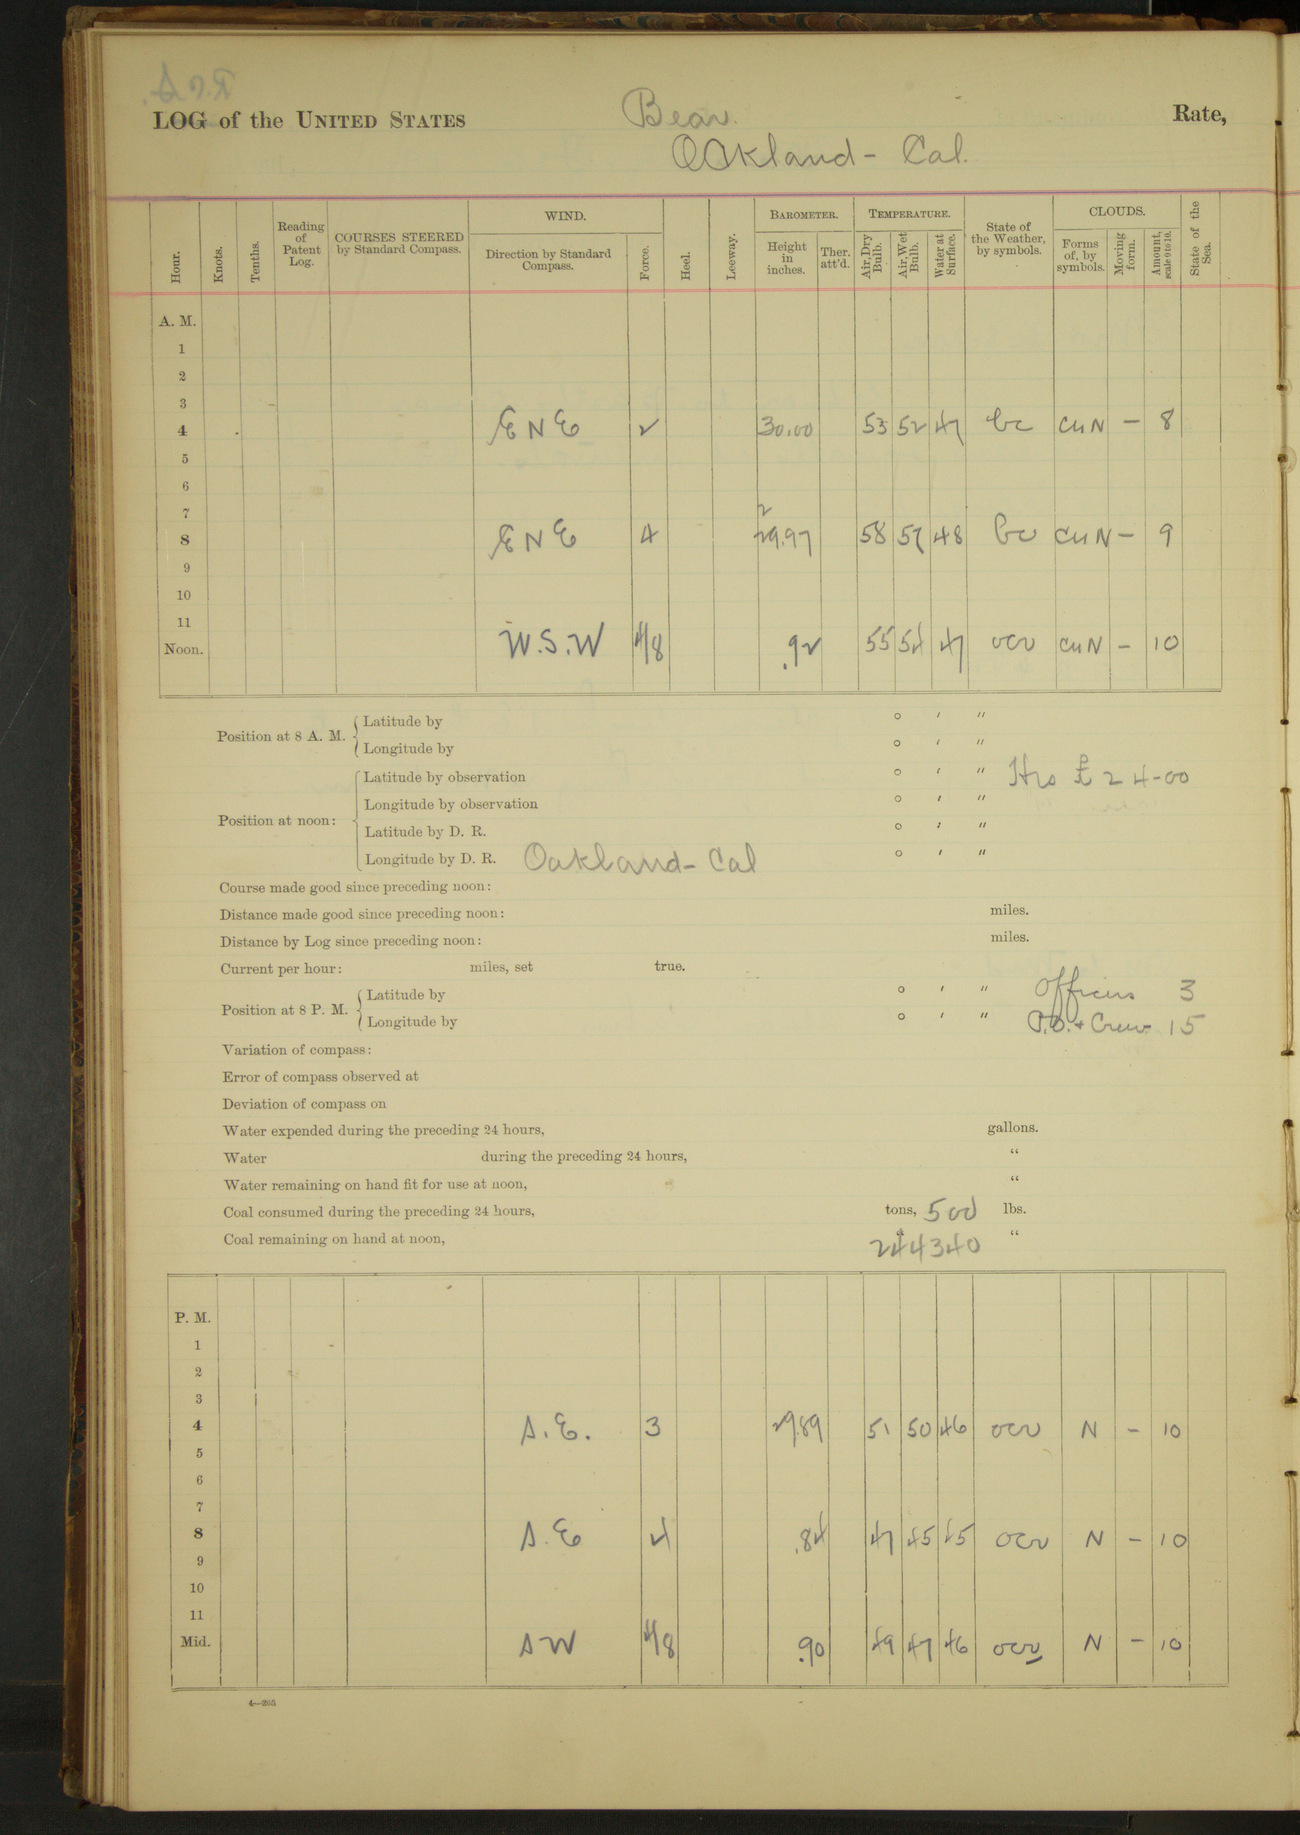 LOG of the UNITED STATES Bear. Rate,
Oakland - Cal.
Hour. Knots. Tenths. Reading of Patent Log. COURSES STEERED by Standard Compass. WIND. Direction by Standard Compass. Force. Heel. Leeway. BAROMETER. Height in inches. Ther. att'd. TEMPERATURE. Air, Dry Bulb. Air, Wet Bulb. Water at Surface. State of the Weather, by symbols. CLOUDS. Forms of, by symbols. Moving form. Amount, scale 0 to 10. State of the Sea.
A. M.
1
2
3
4 ENE 2 30.00 53 52 47 bc CuN - 8
5
6
7
8 ENE 4 29.97 58 57 48 bc CuN - 9
9
10
11
Noon. W.S.W 4/8 .92 55 54 47 ocv CuN - 10
Position at 8 A. M. Latitude by ° ′ ″
Longitude by ° ′ ″
Position at noon: Latitude by observation ° ′ ″ Hrs £ 24-00
Longitude by observation ° ′ ″
Latitude by D. R. ° ′ ″
Longitude by D. R. Oakland - Cal ° ′ ″
Course made good since preceding noon:
Distance made good since preceding noon: miles.
Distance by Log since preceding noon: miles.
Current per hour: miles, set true.
Position at 8 P. M. Latitude by ° ′ ″ Officers 3
Longitude by ° ′ ″ P.O. + Crew 15
Variation of compass:
Error of compass observed at
Deviation of compass on
Water expended during the preceding 24 hours, gallons.
Water during the preceding 24 hours, “
Water remaining on hand fit for use at noon, “
Coal consumed during the preceding 24 hours, tons, 500 lbs.
Coal remaining on hand at noon, 244340 “
P. M.
1
2
3
4 S.E. 3 29.89 51 50 46 ocv N - 10
5
6
7
8 S.E 4 .84 47 45 45 ocv N - 10
9
10
11
Mid. SW 4/8 .90 49 47 46 ocv N - 10
4—205